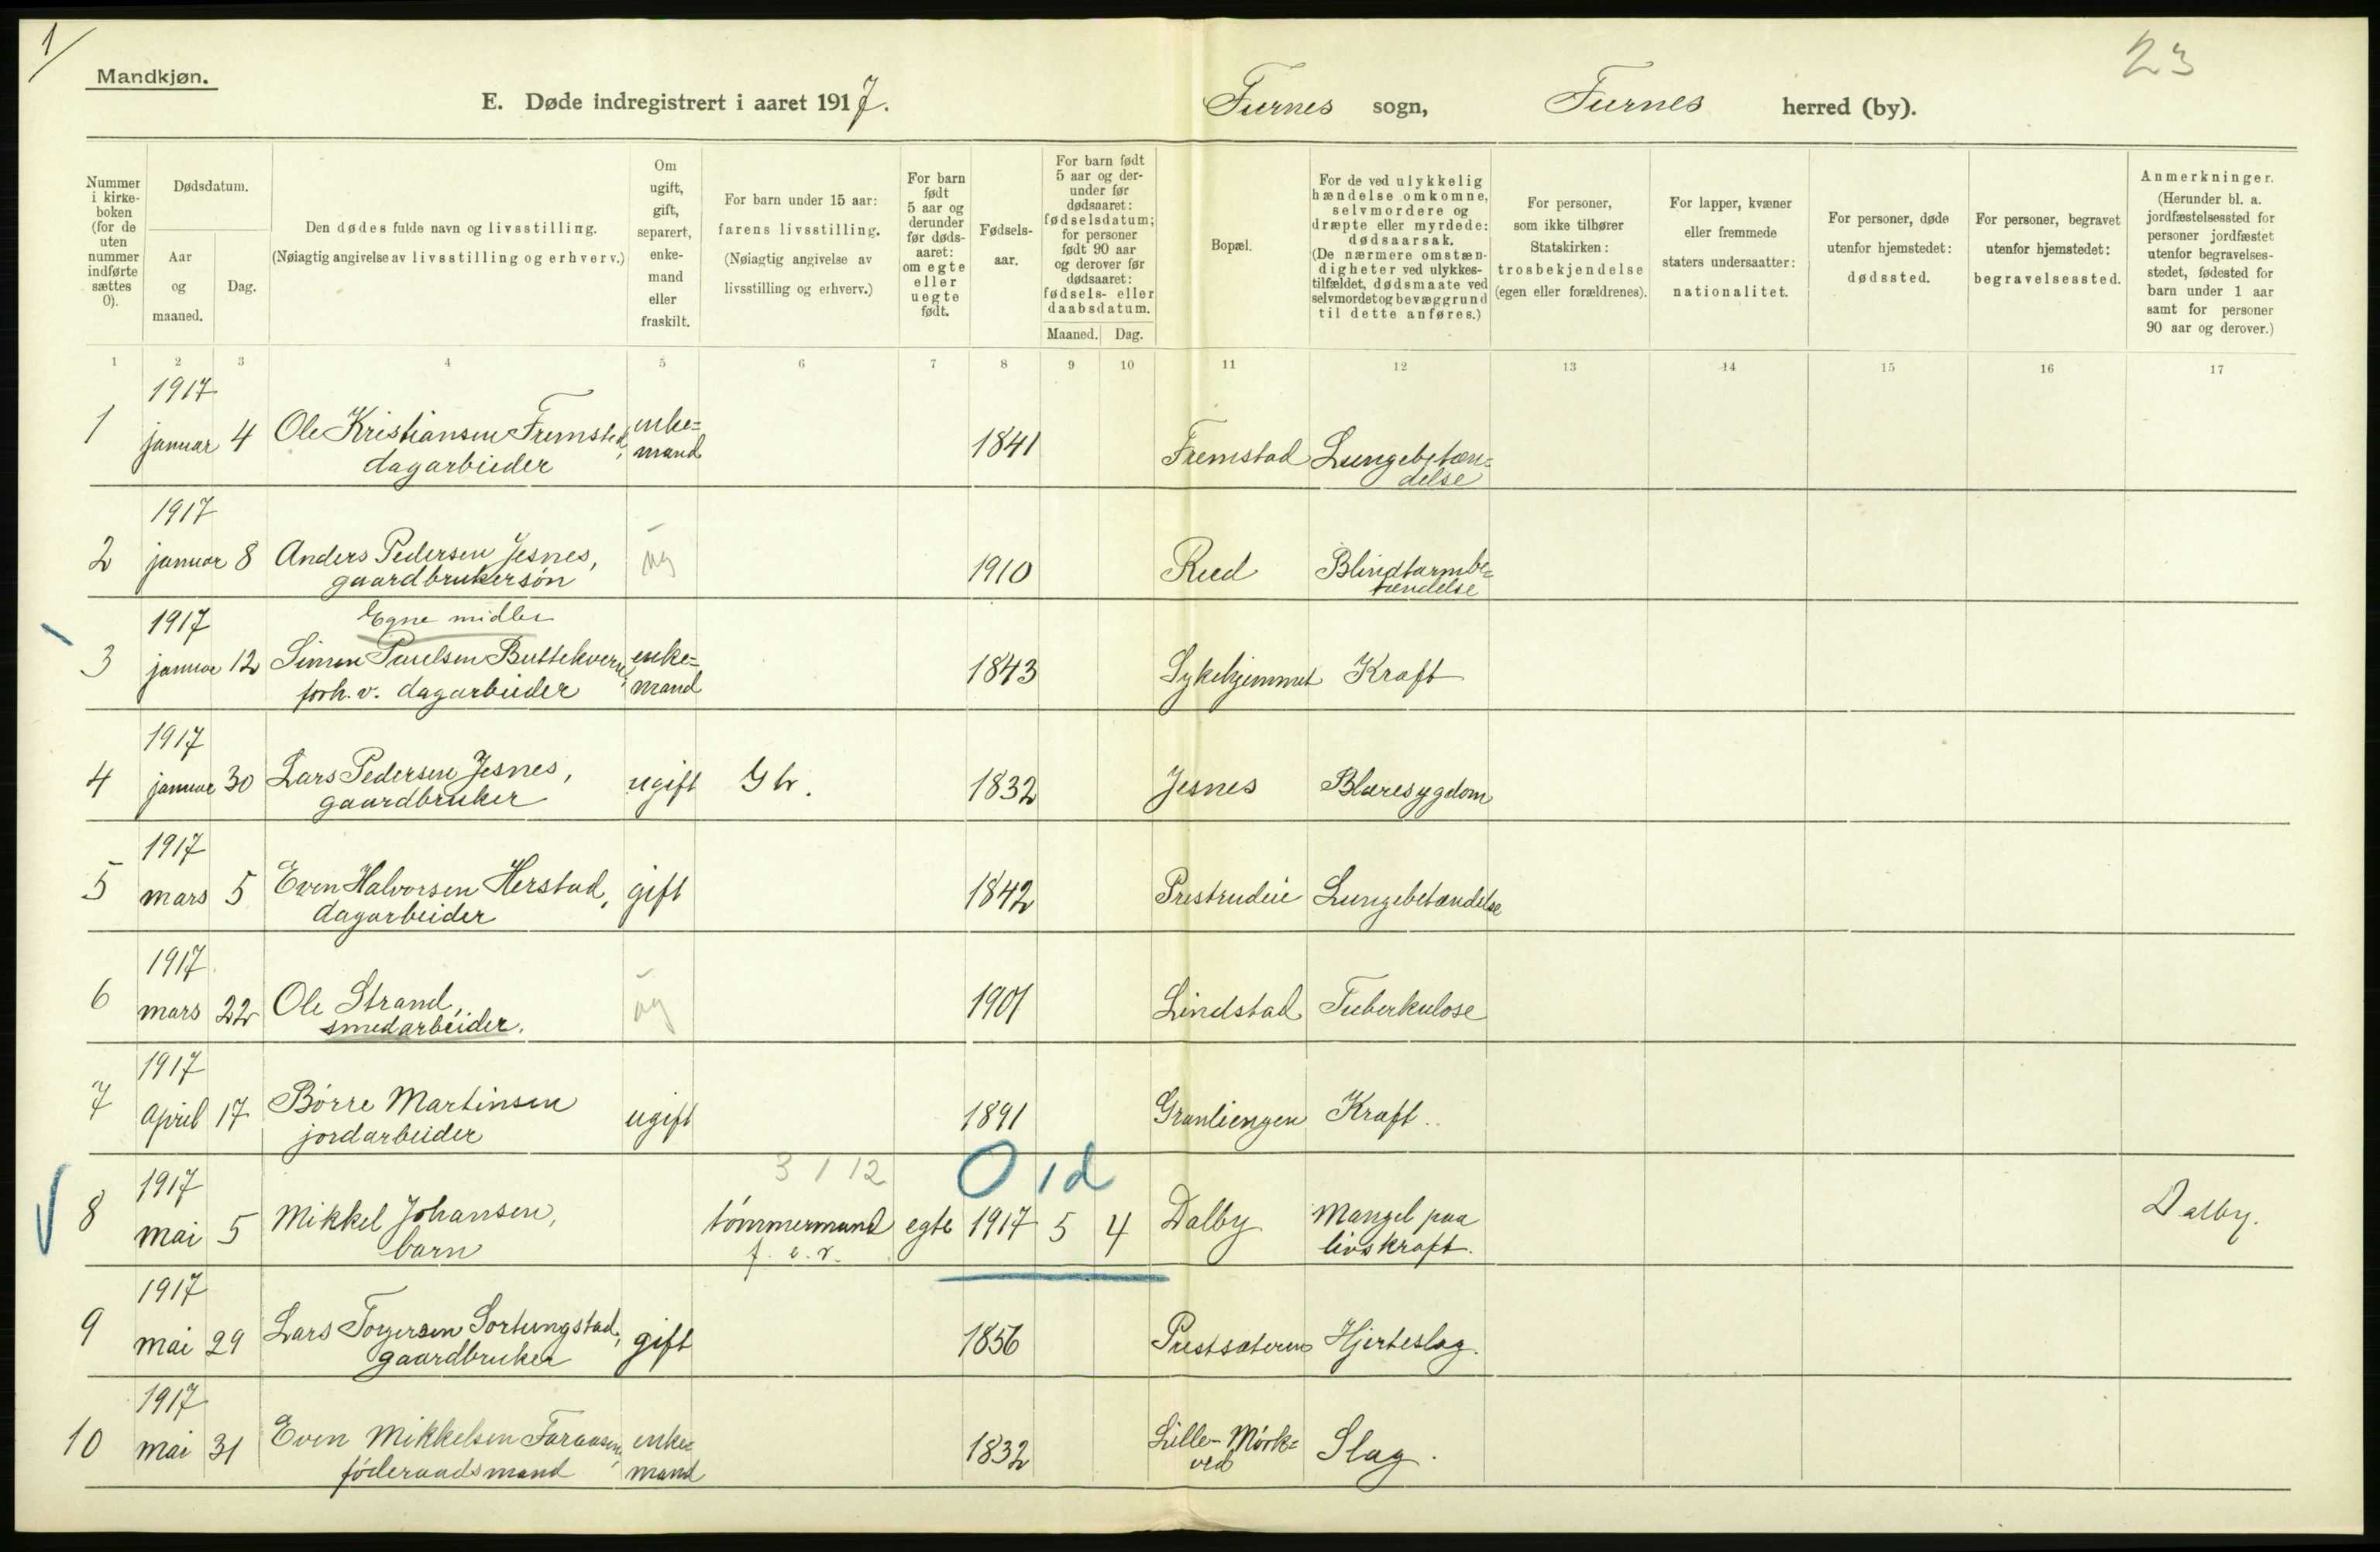 1/
23
Mandkjøn.
E. Døde indregistrert i aaret 1917. Furnes sogn, Furnes herred (by).
Nummer
i kirke-
boken
(for de
uten
nummer
indførte
sættes
0).
Dødsdatum.
Aar
og
maaned.
Dag.
Den dødes fulde navn og livsstilling.
(Nøiagtig angivelse av livsstilling og erhverv.)
Om
ugift,
gift,
separert,
enke-
mand
eller
fraskilt.
For barn under 15 aar:
farens livsstilling.
(Nøiagtig angivelse av
livsstilling og erhverv.)
For barn
født
5 aar og
derunder
før døds-
aaret:
om egte
eller
uegte
født.
Fødsels-
aar.
For barn født
5 aar og der-
under før
dødsaaret:
fødselsdatum;
for personer
født 90 aar
og derover før
dødsaaret:
fødsels- eller
daabsdatum.
Maaned. Dag.
Bopæl.
For de ved ulykkelig
hændelse omkomne,
selvmordere og
dræpte eller myrdede:
dødsaarsak.
(De nærmere omstæn-
digheter ved ulykkes-
tilfældet, dødsmaate ved
selvmordet og bevæggrund
til dette anføres.)
For personer,
som ikke tilhører
Statskirken:
trosbekjendelse
(egen eller forældrenes).
For lapper, kvæner
eller fremmede
staters undersaatter:
nationalitet.
For personer, døde
utenfor hjemstedet:
dødssted.
For personer, begravet
utenfor hjemstedet:
begravelsessted.
Anmerkninger.
(Herunder bl. a.
jordfæstelsessted for
personer jordfæstet
utenfor begravelses-
stedet, fødested for
barn under 1 aar
samt for personer
90 aar og derover.)
1 2 3 4 5 6 7 8 9 10 11 12 13 14 15 16 17
1917
1 januar 4 Ole Kristiansen Fremstad, enke= 1841 Fremstad Lungebetæn=
dagarbeider mand delse
1917
2 januar 8 Anders Pedersen Jesnes, ug 1910 Rud Blindtarmbe=
gaardbrukersøn tændelse
1917 Egne midler
3 januar 12 Simen Paulsen Buttekvern, enke= 1843 Sykehjemmet Kræft
forh. v. dagarbeider mand
1917
4 januar 30 Lars Pedersen Jesnes, ugift Gbr. 1832 Jesnes Blæresygdom
gaardbruker
1917
5 mars 5 Even Halvorsen Herstad, gift 1842 Prestrudeie Lungebetændelse
dagarbeider
1917
6 mars 22 Ole Strand, ug 1901 Lindstad Tuberkulose
smedarbeider.
1917
7 April 17 Børre Martinsen ugift 1891 Granliengen Kræft..
jordarbeider
3 1 12 0 1d
1917
8 mai 5 Mikkel Johansen, tømmermand egte 1917 5 4 Dalby Mangel paa Dalby.
barn f. e. r. livskraft.
1917
9 mai 29 Lars Torgersen Sortungstad, gift 1856 Prestsæteren Hjerteslag.
gaardbruker
1917
10 mai 31 Even Mikkelsen Faraasen, enke= 1832 Lille-Mørk= Slag.
føderaadsmand mand ved